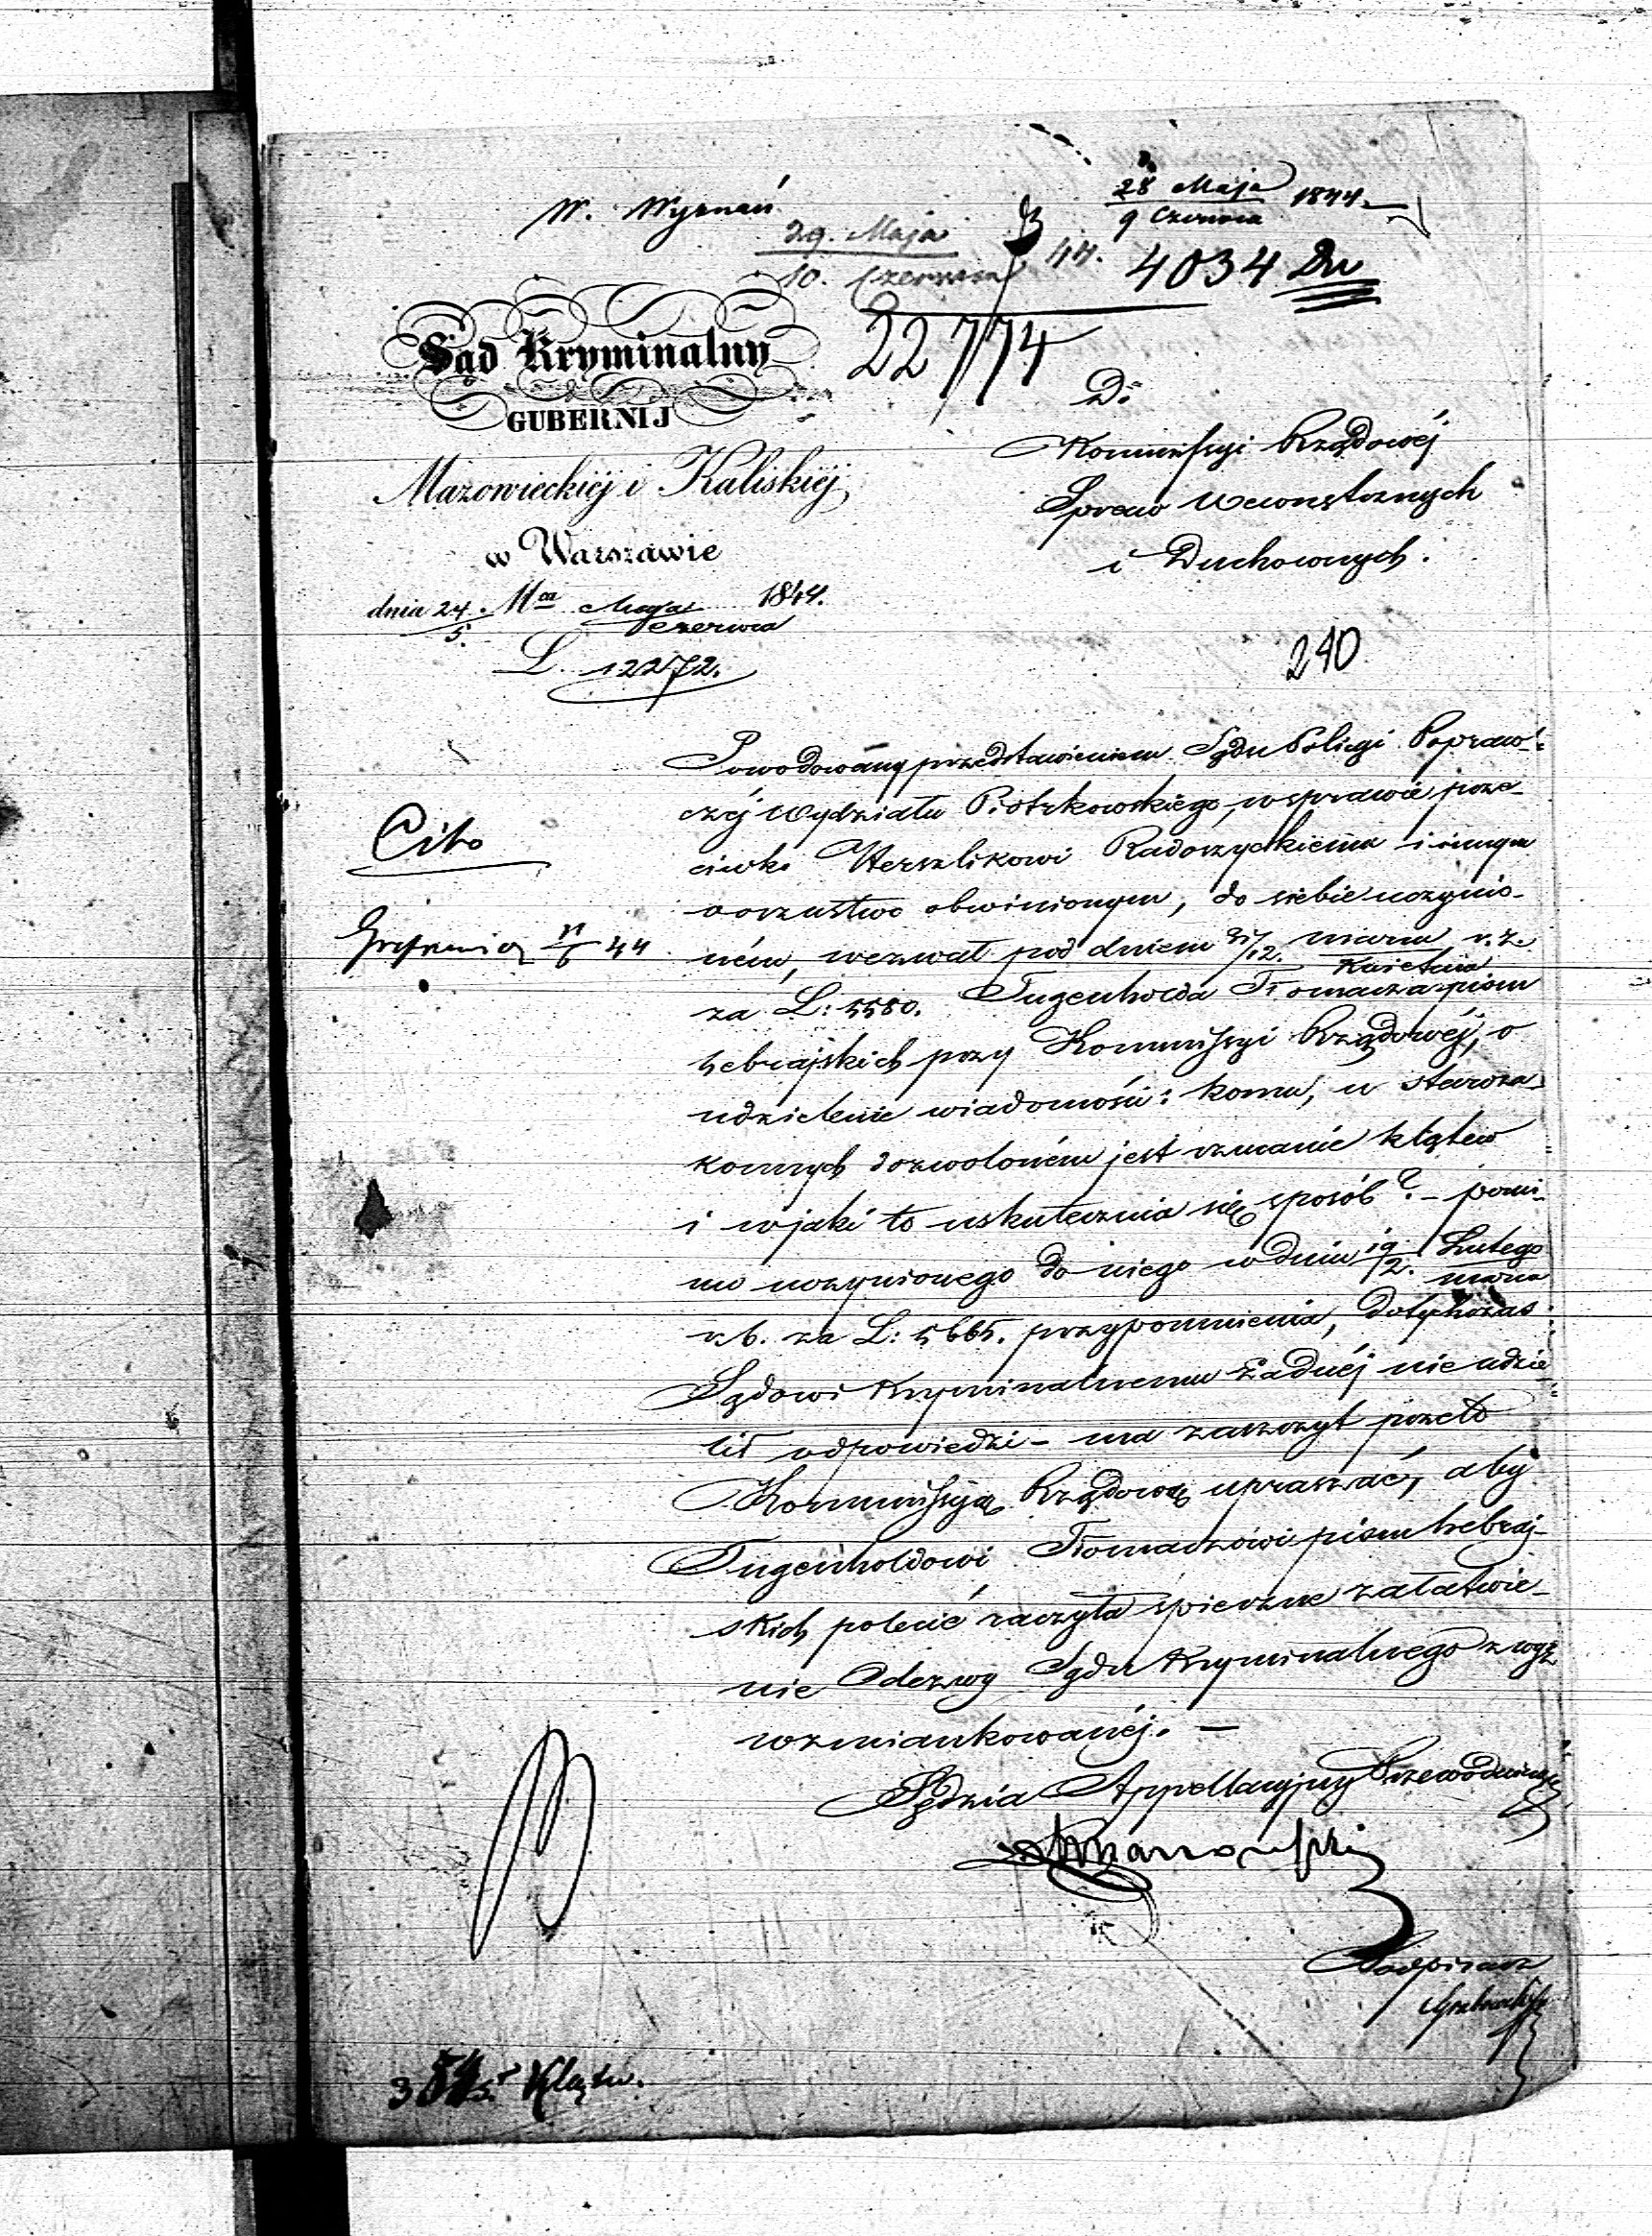 W. Wyznań
28 Maja 1844.
9 Czerwca
29. Maja
10. Czerwca 44.
4034 Dw
22774
Sąd Kryminalny
GUBERNIJ
Mazowieckiéj i Kaliskiéj
w Warszawie
dnia 24. Mca Maja 1844.
5. Czerwca
L. 12272.
Do
Kommissyi Rządowéj
Spraw Wewnętrznych
i Duchownych.
210
Cito
11/6 44
Powodowany przedstawieniem Sądu Policyi Popraw-
czéj Wydziału Piotrkowskiego, w sprawie prze-
ciwko Herszlikowi Radoszyckiemu i innym
o oszustwo obwinionym, do siebie uczynio-
ném, wezwał pod dniem 31/12. marca r. z.
Kwietnia
za L: 5580. Tugenholda Tłomacza pism
hebrajskich przy Kommissyi Rządowéj, o
udzielenie wiadomości: komu, u staroza-
konnych dozwoloném jest rzucanie klątew
i w jaki to uskutecznia się sposób? – pomi-
mo uczynionego do niego w dniu 19/2. Lutego
marca
r. b. za L: 5665. przypomnienia, dotychczas
Sądowi Kryminalnemu żadnéj nie udzie-
lił odpowiedzi – ma zaszczyt przeto
Kommissyą Rządową upraszać, aby
Tugenholdowi Tłomaczowi pism hebraj-
skich polecić raczyła śpieszne załatwie-
nie Odezwy Sądu Kryminalnego z wyż
wzmiankowanéj. –
Sędzia Appellacyjny Przewodniczący
Podpisarz
Klątw.